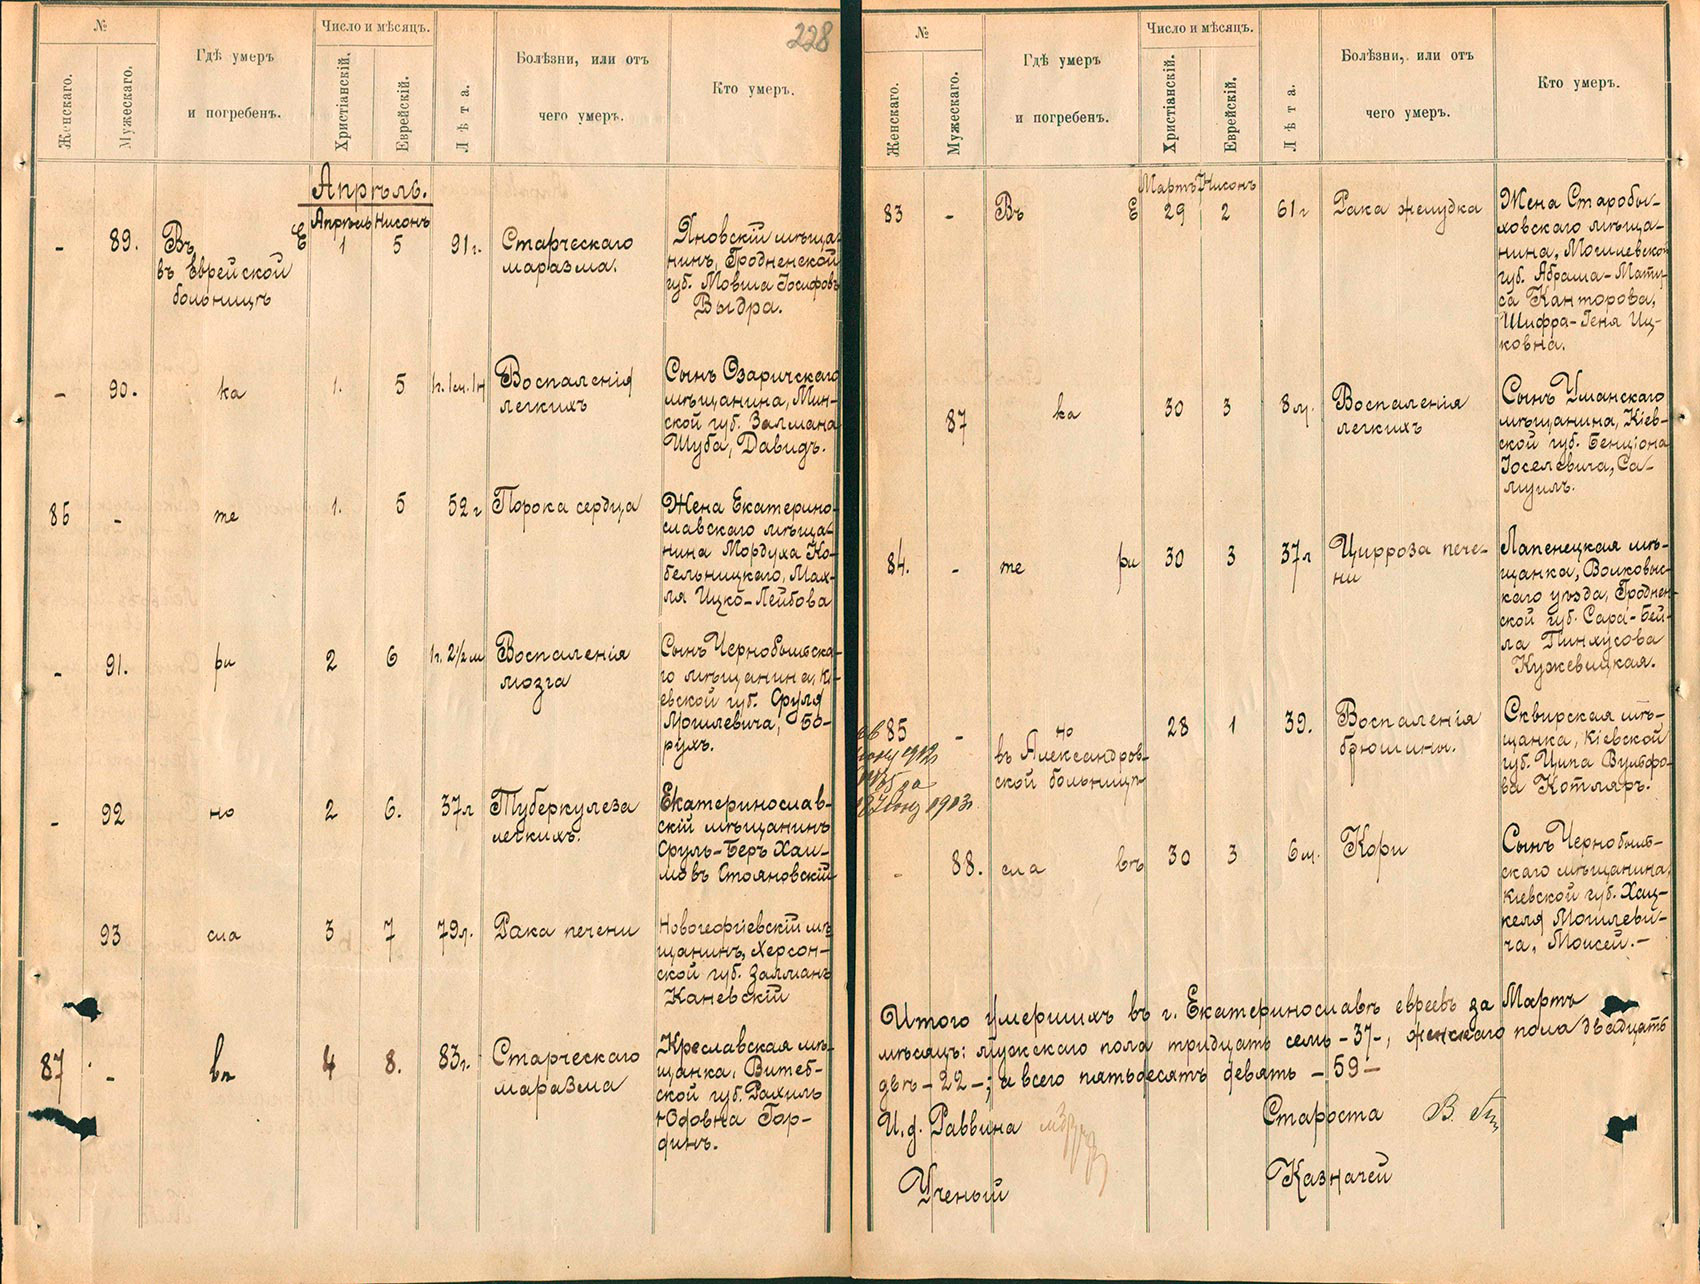 228
№
Женскаго.
Мужескаго.
Гдѣ умеръ
и погребенъ.
Число и мѣсяцъ.
Христіанскій.
Еврейскій.
Лѣта.
Болѣзни, или отъ
чего умеръ.
Кто умеръ.
Апрѣль.
Апрѣль Нисонъ
- 89. Въ Е 1 5 91 г.
въ Еврейской
больницѣ
Старческаго
маразма.
Яновскій мѣща-
нинъ, Гродненской
губ. Мовша Іосифовъ
Выдра.
- 90. ка 1. 5 1 г. 1 м. 1 н
Воспаленія
легкихъ
Сынъ Озаричскаго
мѣщанина, Мин-
ской губ. Залмана
Шуба, Давидъ.
85 - те 1. 5 52 г
Порока сердца
Жена Екатерино-
славскаго мѣща-
нина Мордуха Ко-
бельницкаго, Мах-
ля Ицко-Лейбова
- 91. ри 2 6 1 г. 2½ м
Воспаленія
мозга
Сынъ Чернобыльска-
го мѣщанина, Кі-
евской губ. Сруля
Могилевича, Бо-
рухъ.
- 92 но 2 6. 37 л
Туберкулеза
легкихъ.
Екатеринослав-
скій мѣщанинъ
Сруль-Беръ Хаи-
мовъ Стояновскій
93 сла 3 7 79 л.
Рака печени
Новогеоргіевскій мѣ-
щанинъ, Херсон-
ской губ. Залманъ
Каневскій
87 - вѣ 4 8. 83 г.
Старческаго
маразма
Креславская мѣ-
щанка, Витеб-
ской губ. Рахиль
Юдовна Гор-
динъ.
№
Женскаго.
Мужескаго.
Гдѣ умеръ
и погребенъ.
Число и мѣсяцъ.
Христіанскій.
Еврейскій.
Лѣта.
Болѣзни, или отъ
чего умеръ.
Кто умеръ.
Мартъ Нисонъ
83 - Въ Е 29 2 61 г
Рака желудка
Жена Старобы-
ховскаго мѣща-
нина, Могилевской
губ. Абрама-Мату-
са Канторова,
Шифра-Геня Иц-
ковна.
87 ка 30 3 8 м.
Воспаленія
легкихъ
Сынъ Уманскаго
мѣщанина, Кіев-
ской губ. Бенціона
Іоселевича, Са-
муилъ.
84. - те ри 30 3 37 л
Цирроза пече-
ни
Лапенецкая мѣ-
щанка, Волковыс-
каго уѣзда, Гроднен-
ской губ. Сара-Бей-
ла Пинхусова
Кужевицкая.
85 - но 28 1 39.
въ Александров-
ской больницѣ
Воспаленія
брюшины.
Сквирская мѣ-
щанка, Кіевской
губ. Ципа Вульфо-
ва Котляръ.
- 88. сла вѣ 30 3 6 м.
Кори
Сынъ Чернобыль-
скаго мѣщанина,
Кіевской губ. Хац-
келя Могилеви-
ча, Моисей.-
Итого умершихъ въ г. Екатеринославѣ евреевъ за Мартъ
мѣсяцъ: мужскаго пола тридцать семь -37-, женскаго пола двадцать
двѣ -22-; а всего пятьдесятъ девять -59-
И.д. Раввина
Староста
Ученый
Казначей